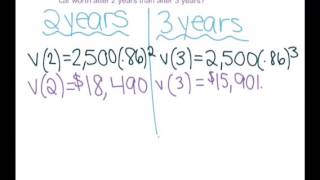 car worth after 2 years than after 3 years?
2 years 3 years
v(2)=2,500(.86)² v(3)=2,500(.86)³
v(2)=$18,490 v(3)=$15,901.